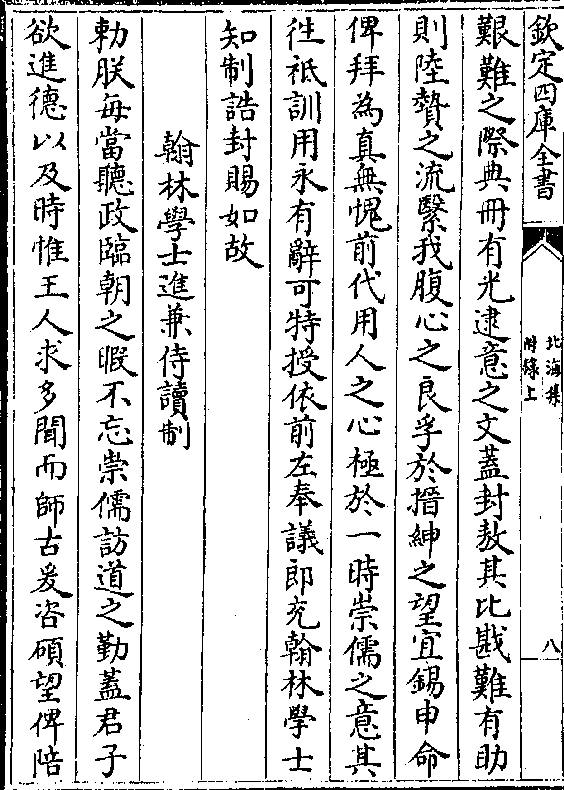 欽定四庫全書
北海集
附錄上
八
艱難之際典冊有光逮意之文蓋封敖其比戡難有助
則陸贄之流繄我腹心之良孚於搢紳之望宜錫申命
俾拜為真無愧前代用人之心極於一時崇儒之意其
徃祗訓用永有辭可特授依前左奉議郎充翰林學士
知制誥封賜如故
翰林學士進兼侍讀制
勅朕每當聽政臨朝之暇不忘崇儒訪道之勤蓋君子
欲進德以及時惟王人求多聞而師古爰咨碩望俾陪